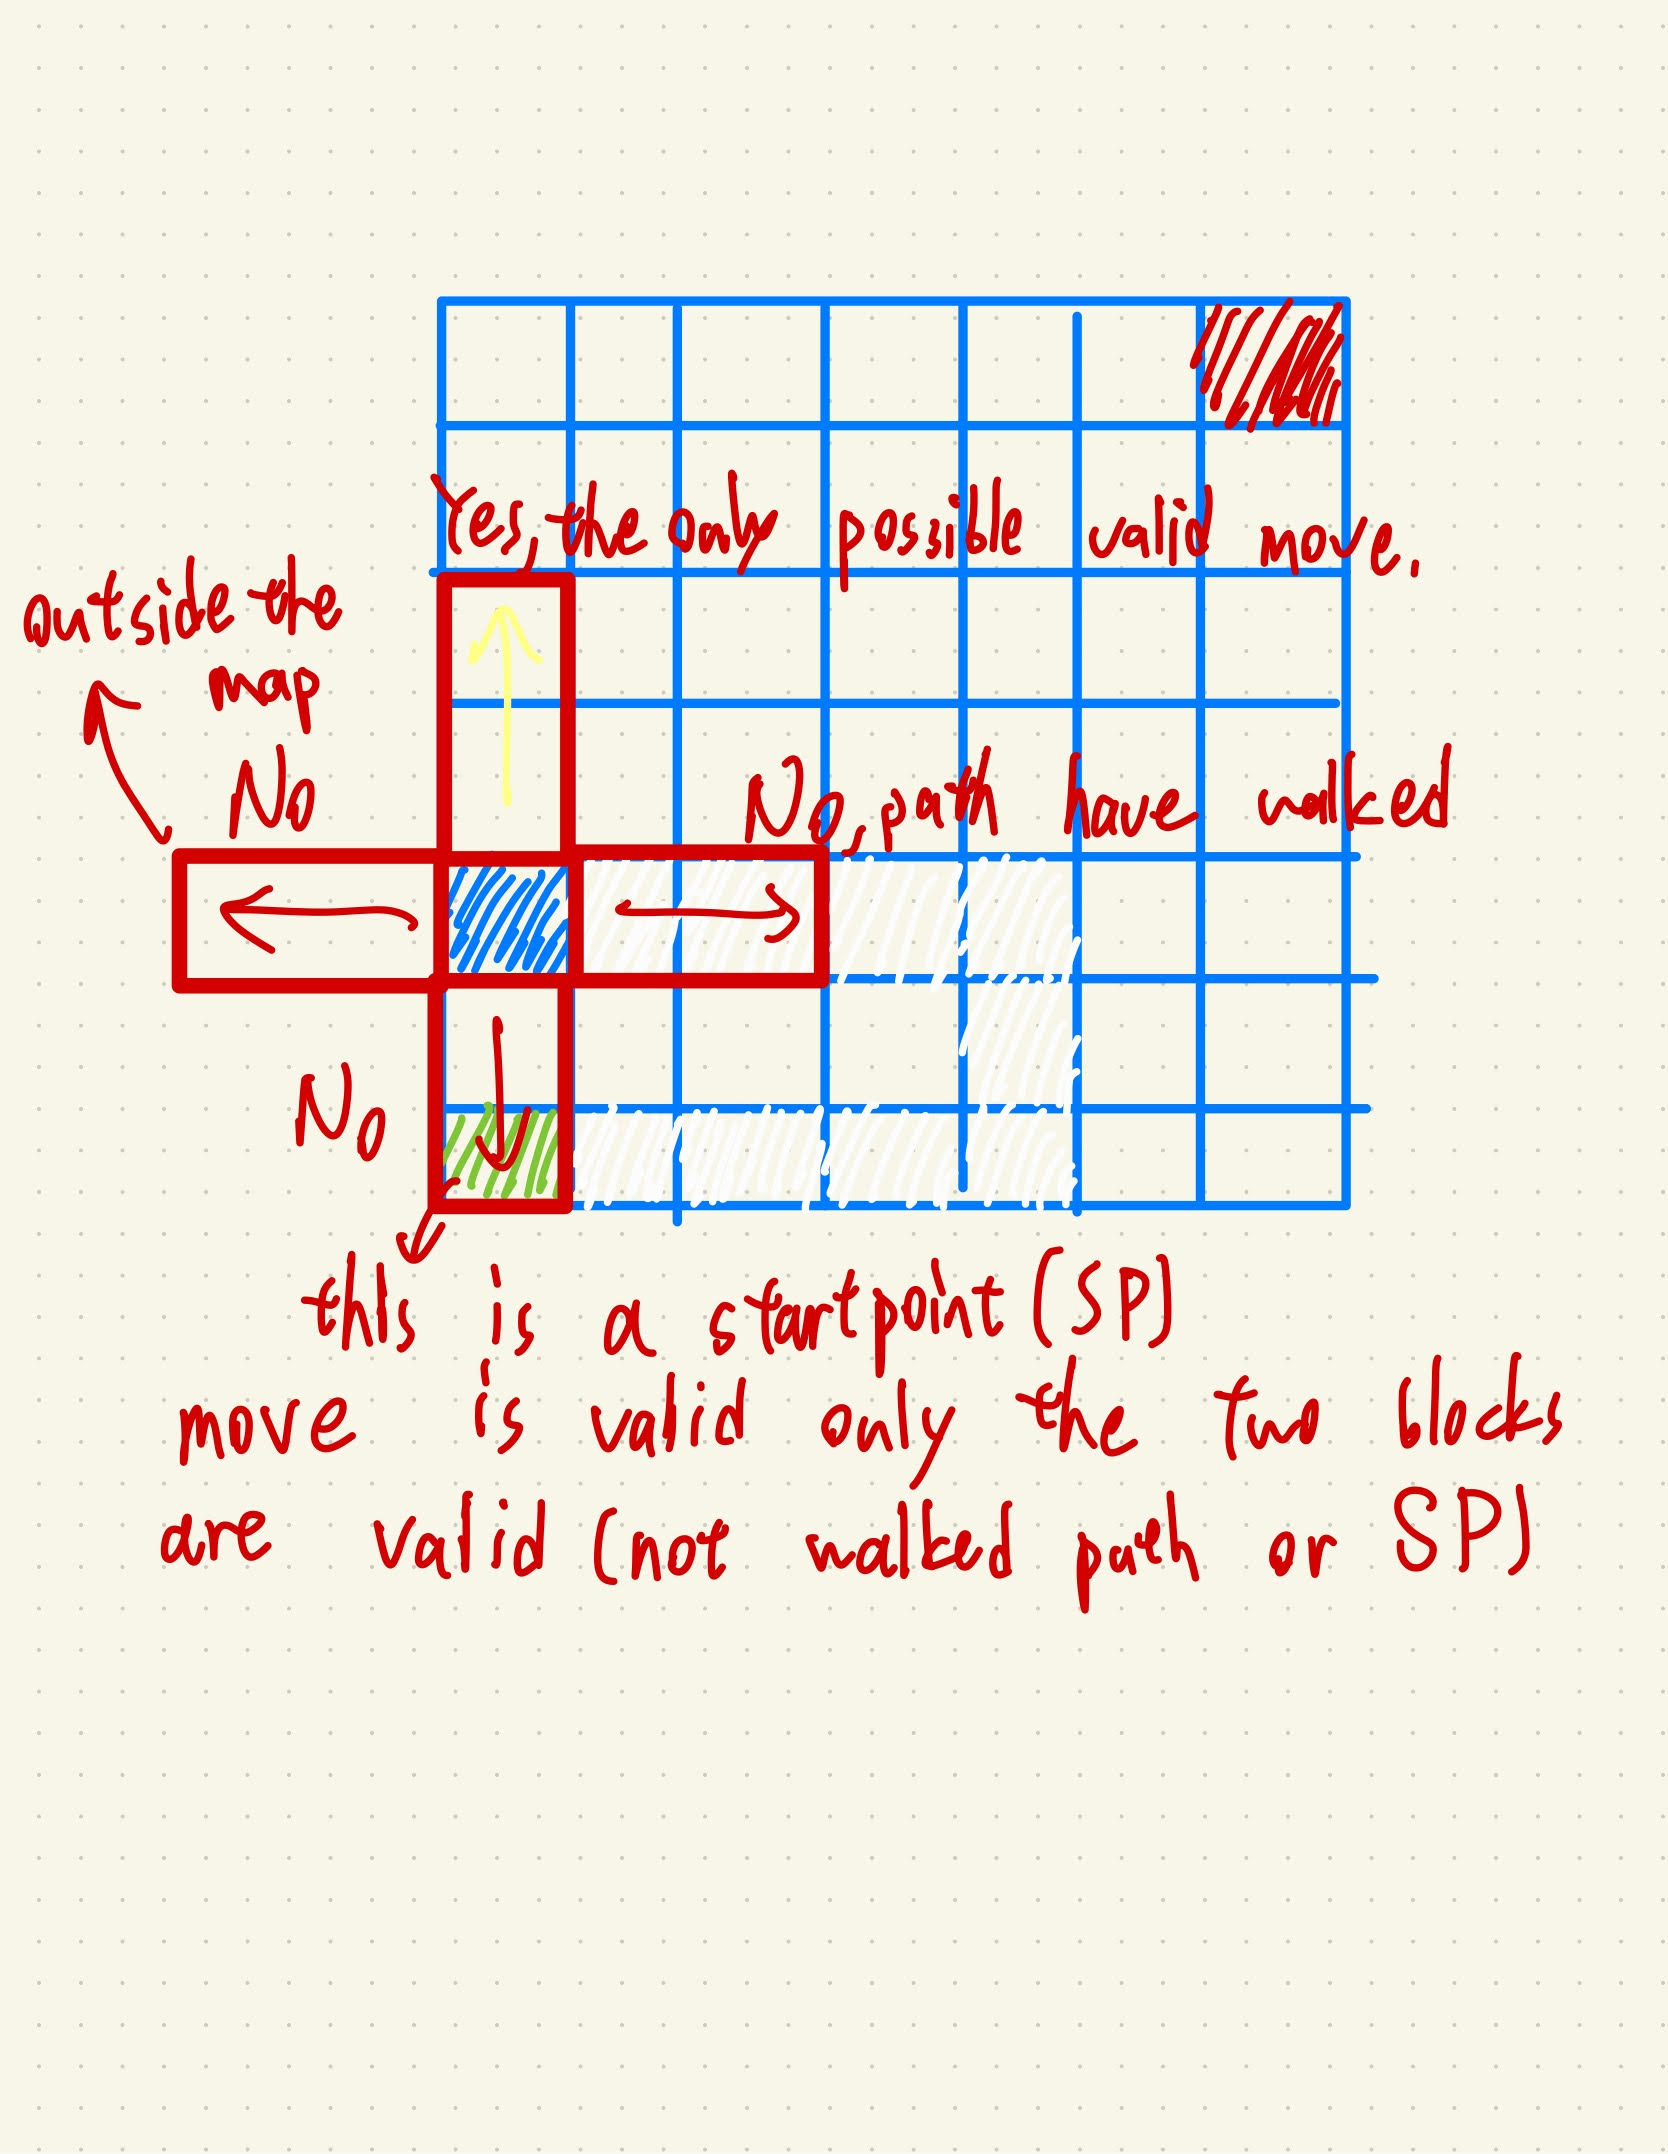 Yes, the only possible valid move.
outside the
map
No
No, path have walked
No
this is a startpoint (SP)
move is valid only the two blocks
are valid (not walked path or SP)